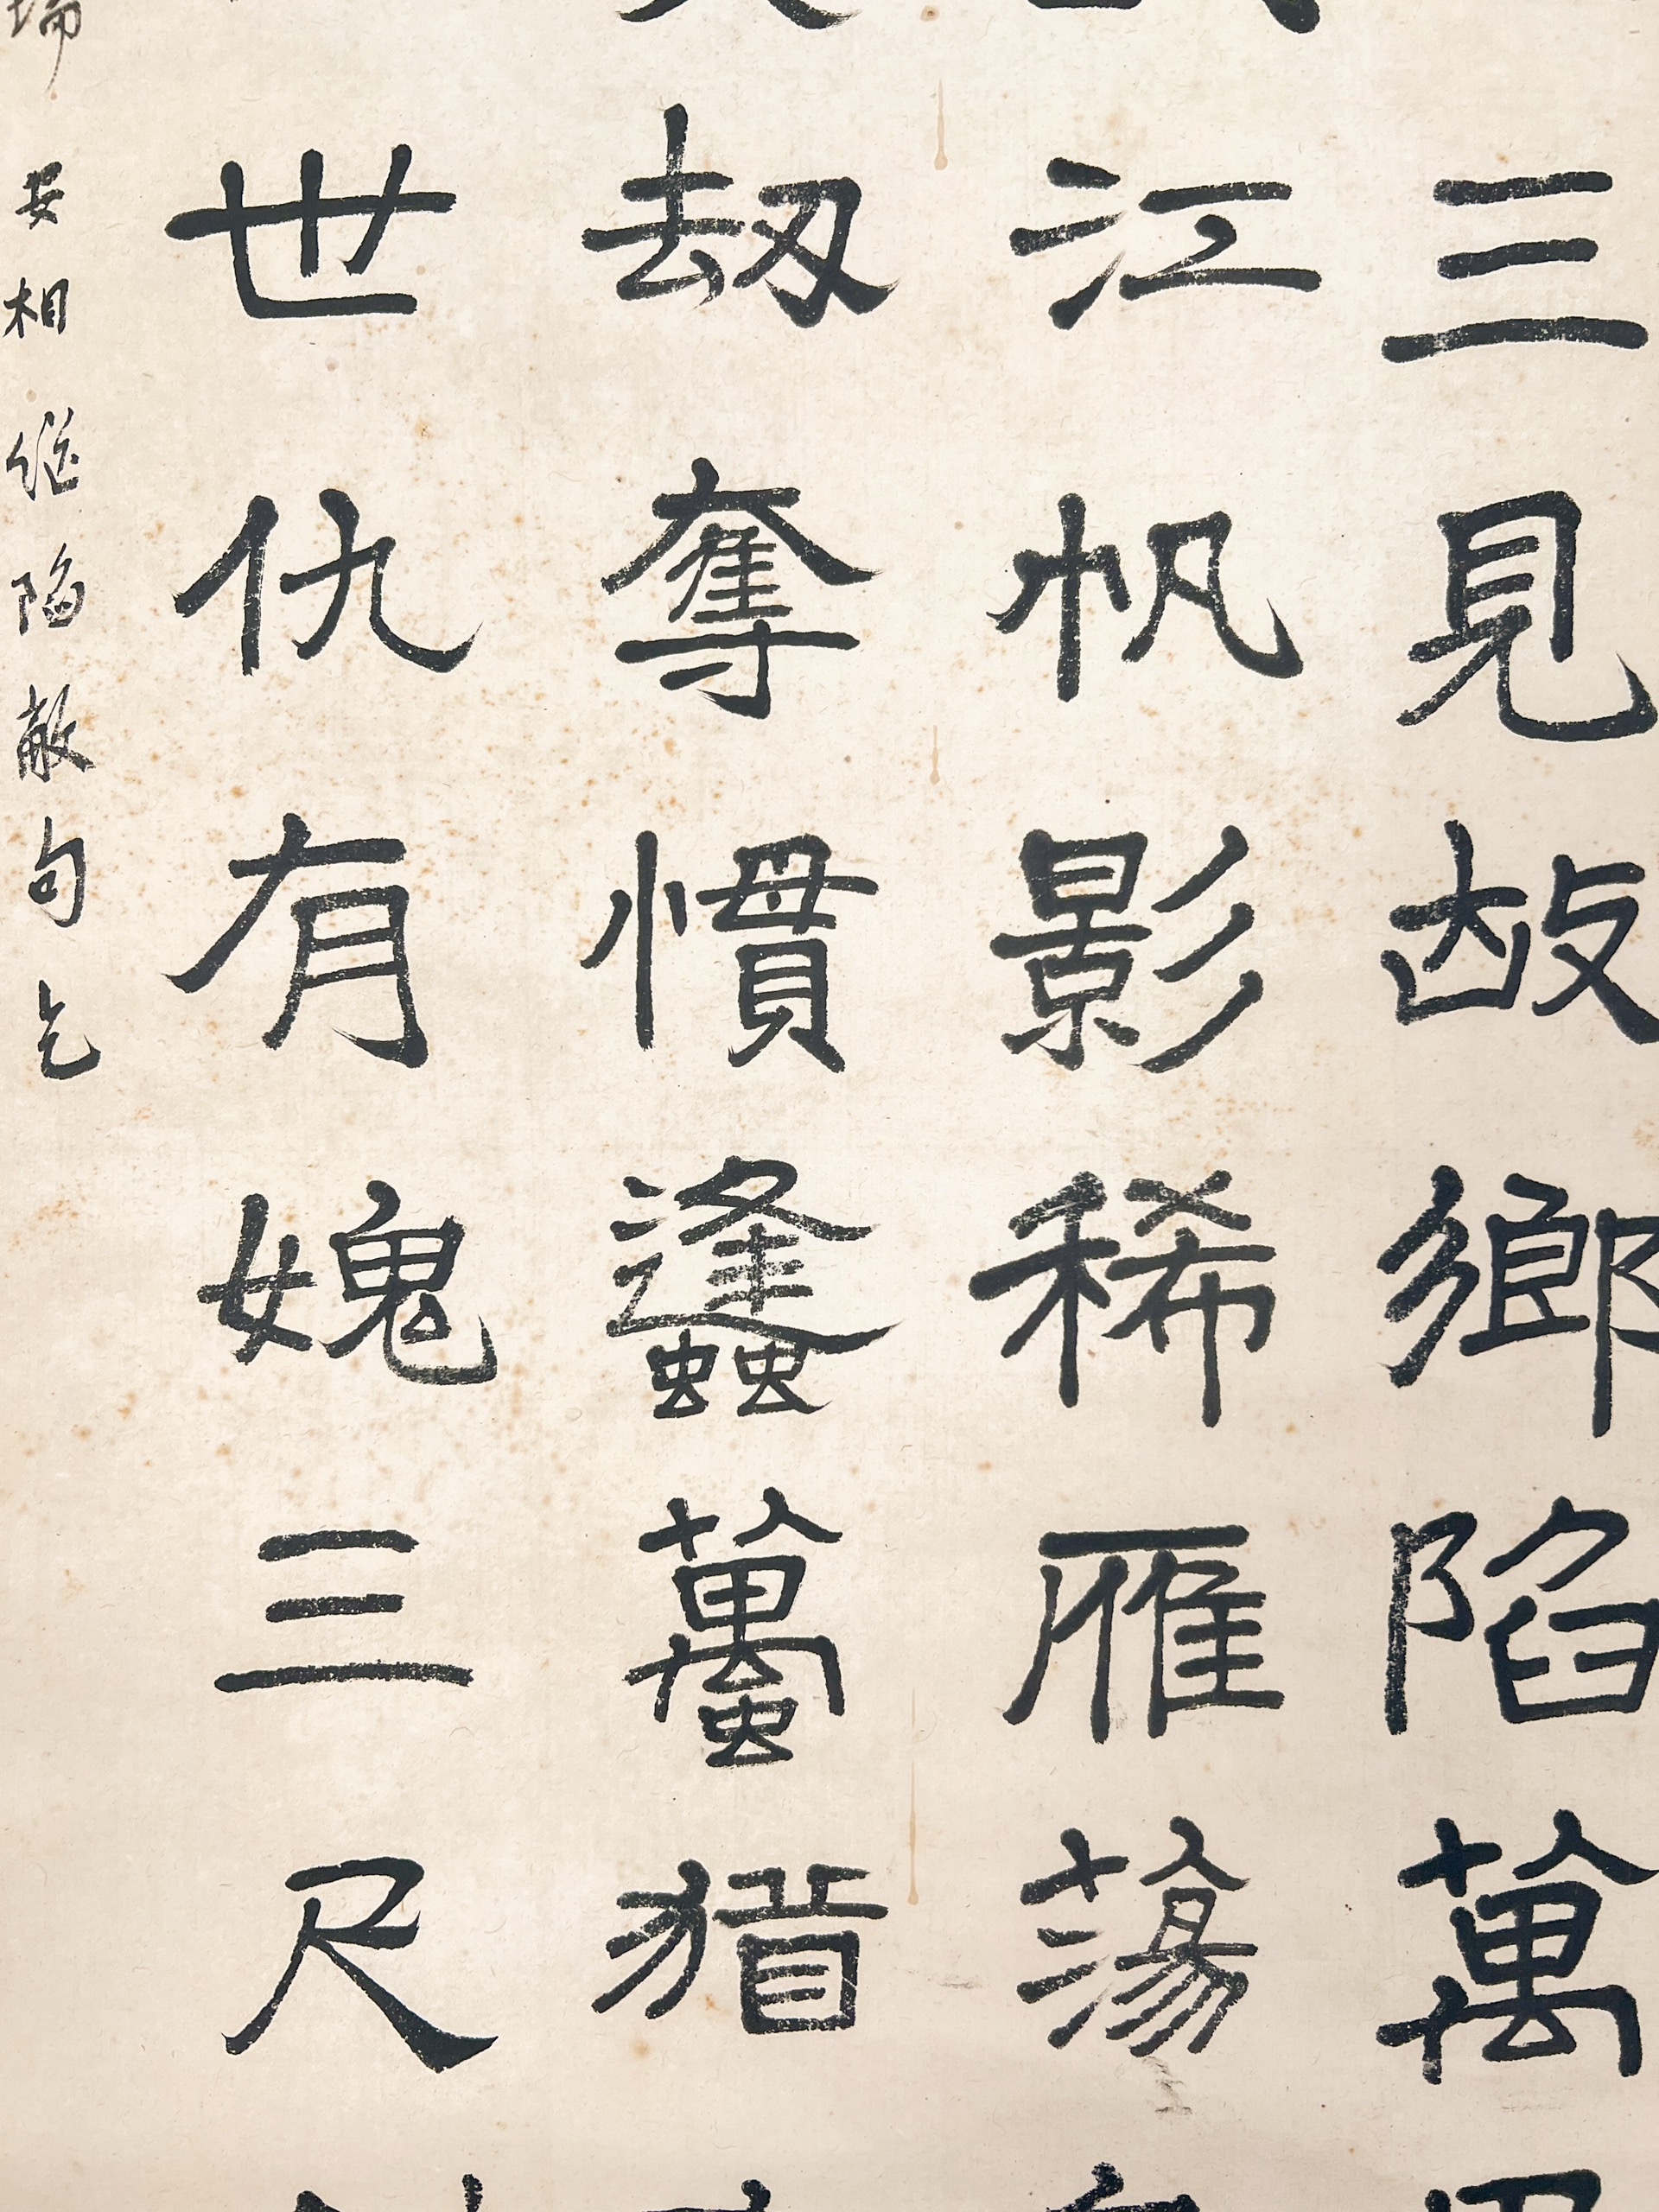 三見故鄉陷萬
江帆影稀雁蕩
劫奪慣蠭蠆猶
世仇有媿三尺
瑞安相继陷敵句乞